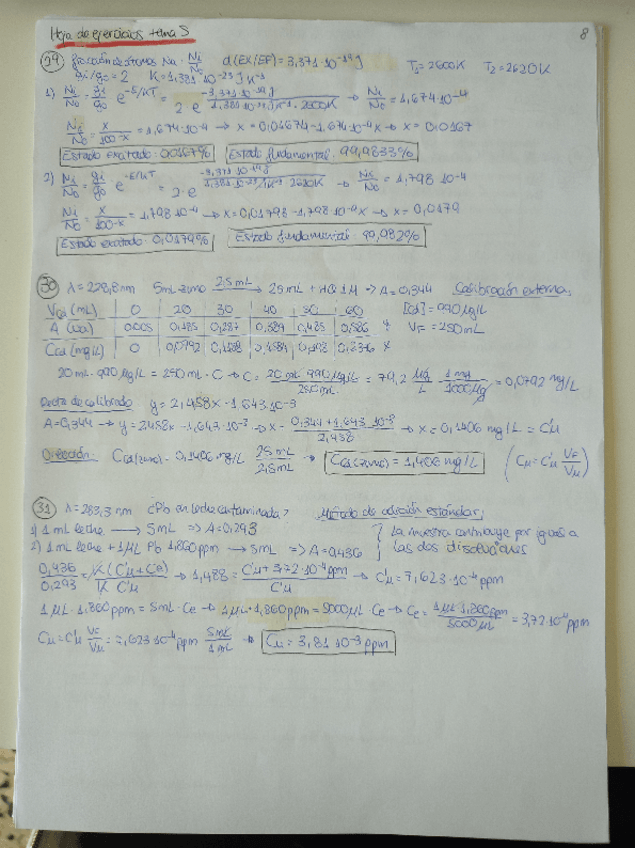 Hoja de ejercicios tema 5
8
29 fracción de átomos Na Ni/No d(EX/EF)=3,371·10⁻¹⁹ J T₁=2600K T₂=2620K
gi/go=2 K=1,381·10⁻²³ J K⁻¹
1) Ni/No = gi/go e^(-E/KT) = 2·e^(-3,371·10⁻¹⁹ J / 1,381·10⁻²³ J K⁻¹ · 2600K) → Ni/No = 1,674·10⁻⁴
Ni/No = x/100-x = 1,674·10⁻⁴ → x = 0,01674 - 1,674·10⁻⁴x → x = 0,0167
Estado exitado: 0,0167% Estado fundamental: 99,9833%
2) Ni/No = gi/go e^(-E/KT) = 2·e^(-3,371·10⁻¹⁹ J / 1,381·10⁻²³ J K⁻¹ 2620K) → Ni/No = 1,798·10⁻⁴
Ni/No = x/100-x = 1,798·10⁻⁴ → x = 0,01798 - 1,798·10⁻⁴x → x = 0,0179
Estado exitado: 0,0179% Estado fundamental: 99,982%
30 λ=228,8nm 5mL zumo 2,5mL → 25mL + HCl 1M ⇒ A=0,344 Calibración externa
Vcd (mL) 0 20 30 40 50 60 [Cd]=990 μg/L
A (ua) 0,005 0,185 0,287 0,384 0,485 0,586 y VF=250mL
Ccd (mg/L) 0 0,0792 0,1188 0,1584 0,198 0,2376 x
20mL·990 μg/L = 250mL·C → C = 20mL 990 μg/L / 250mL = 79,2 μg/L · 1mg/1000μg = 0,0792 mg/L
Recta de calibrado y=2,458x-1,643·10⁻³
A=0,344 → y=2,458x-1,643·10⁻³ → x = 0,344+1,643·10⁻³ / 2,458 → x=0,1406 mg/L = C'μ
Dilución: Ccd(zumo) = 0,1406 mg/L 25mL/2,5mL → Ccd(zumo) = 1,406 mg/L (Cμ = C'μ VF/Vμ)
31 λ=283,3nm ¿Pb en leche contaminada? Método de adición estándar
1) 1mL leche → 5mL ⇒ A=0,293 La muestra contribuye por igual a
2) 1mL leche + 1μL Pb 1,860ppm → 5mL ⇒ A=0,436 las dos disoluciones
0,436/0,293 = K(C'μ+Ce)/K C'μ → 1,488 = C'μ+3,72·10⁻⁴ppm / C'μ → C'μ = 7,623·10⁻⁴ ppm
1μL·1,860ppm = 5mL·Ce → 1μL·1,860ppm = 5000μL·Ce → Ce = 1μL·1,860ppm / 5000μL = 3,72·10⁻⁴ ppm
Cμ = C'μ VF/Vμ = 7,623·10⁻⁴ ppm 5mL/1mL → Cμ = 3,81·10⁻³ ppm